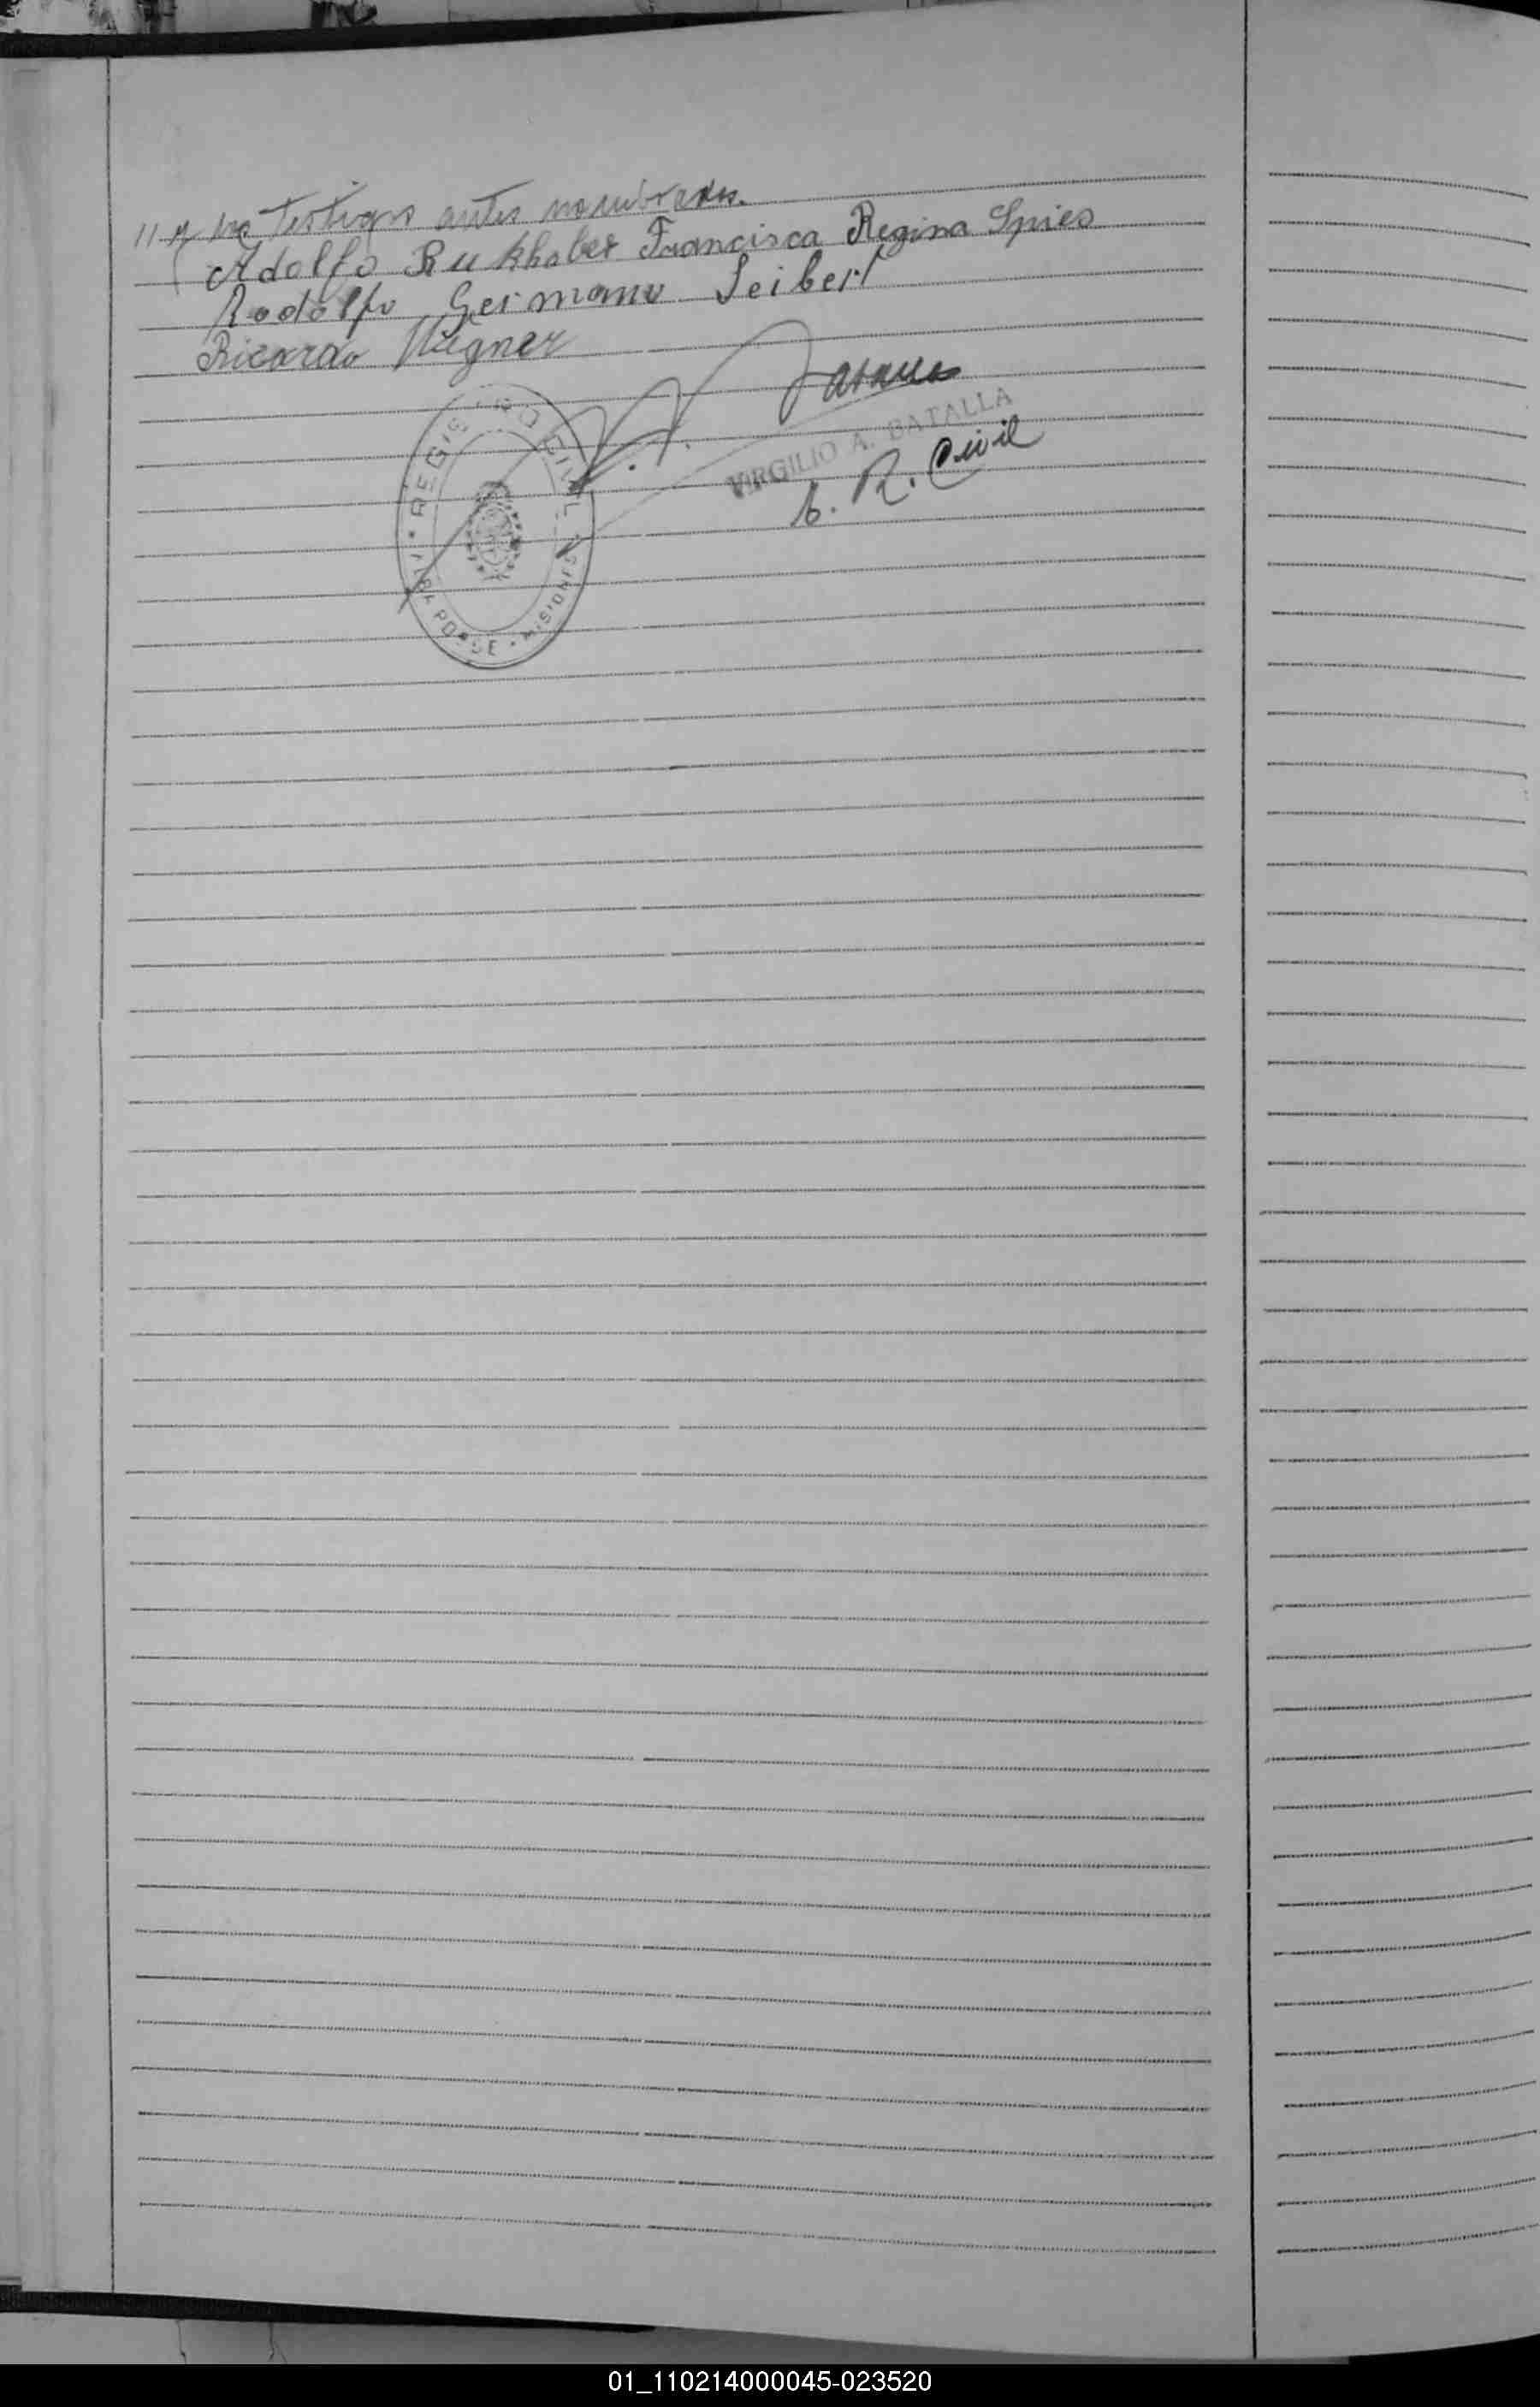 // y los testigos antes nombrados.
Adolfo Rukhaber Francisca Regina Spies
Rodolfo Germano Seibert
Ricardo Wagner
V. A. Batalla
VIRGILIO A. BATALLA
E. R. Civil
REGISTRO CIVIL
PORÁ · MISIONES
01_110214000045-023520